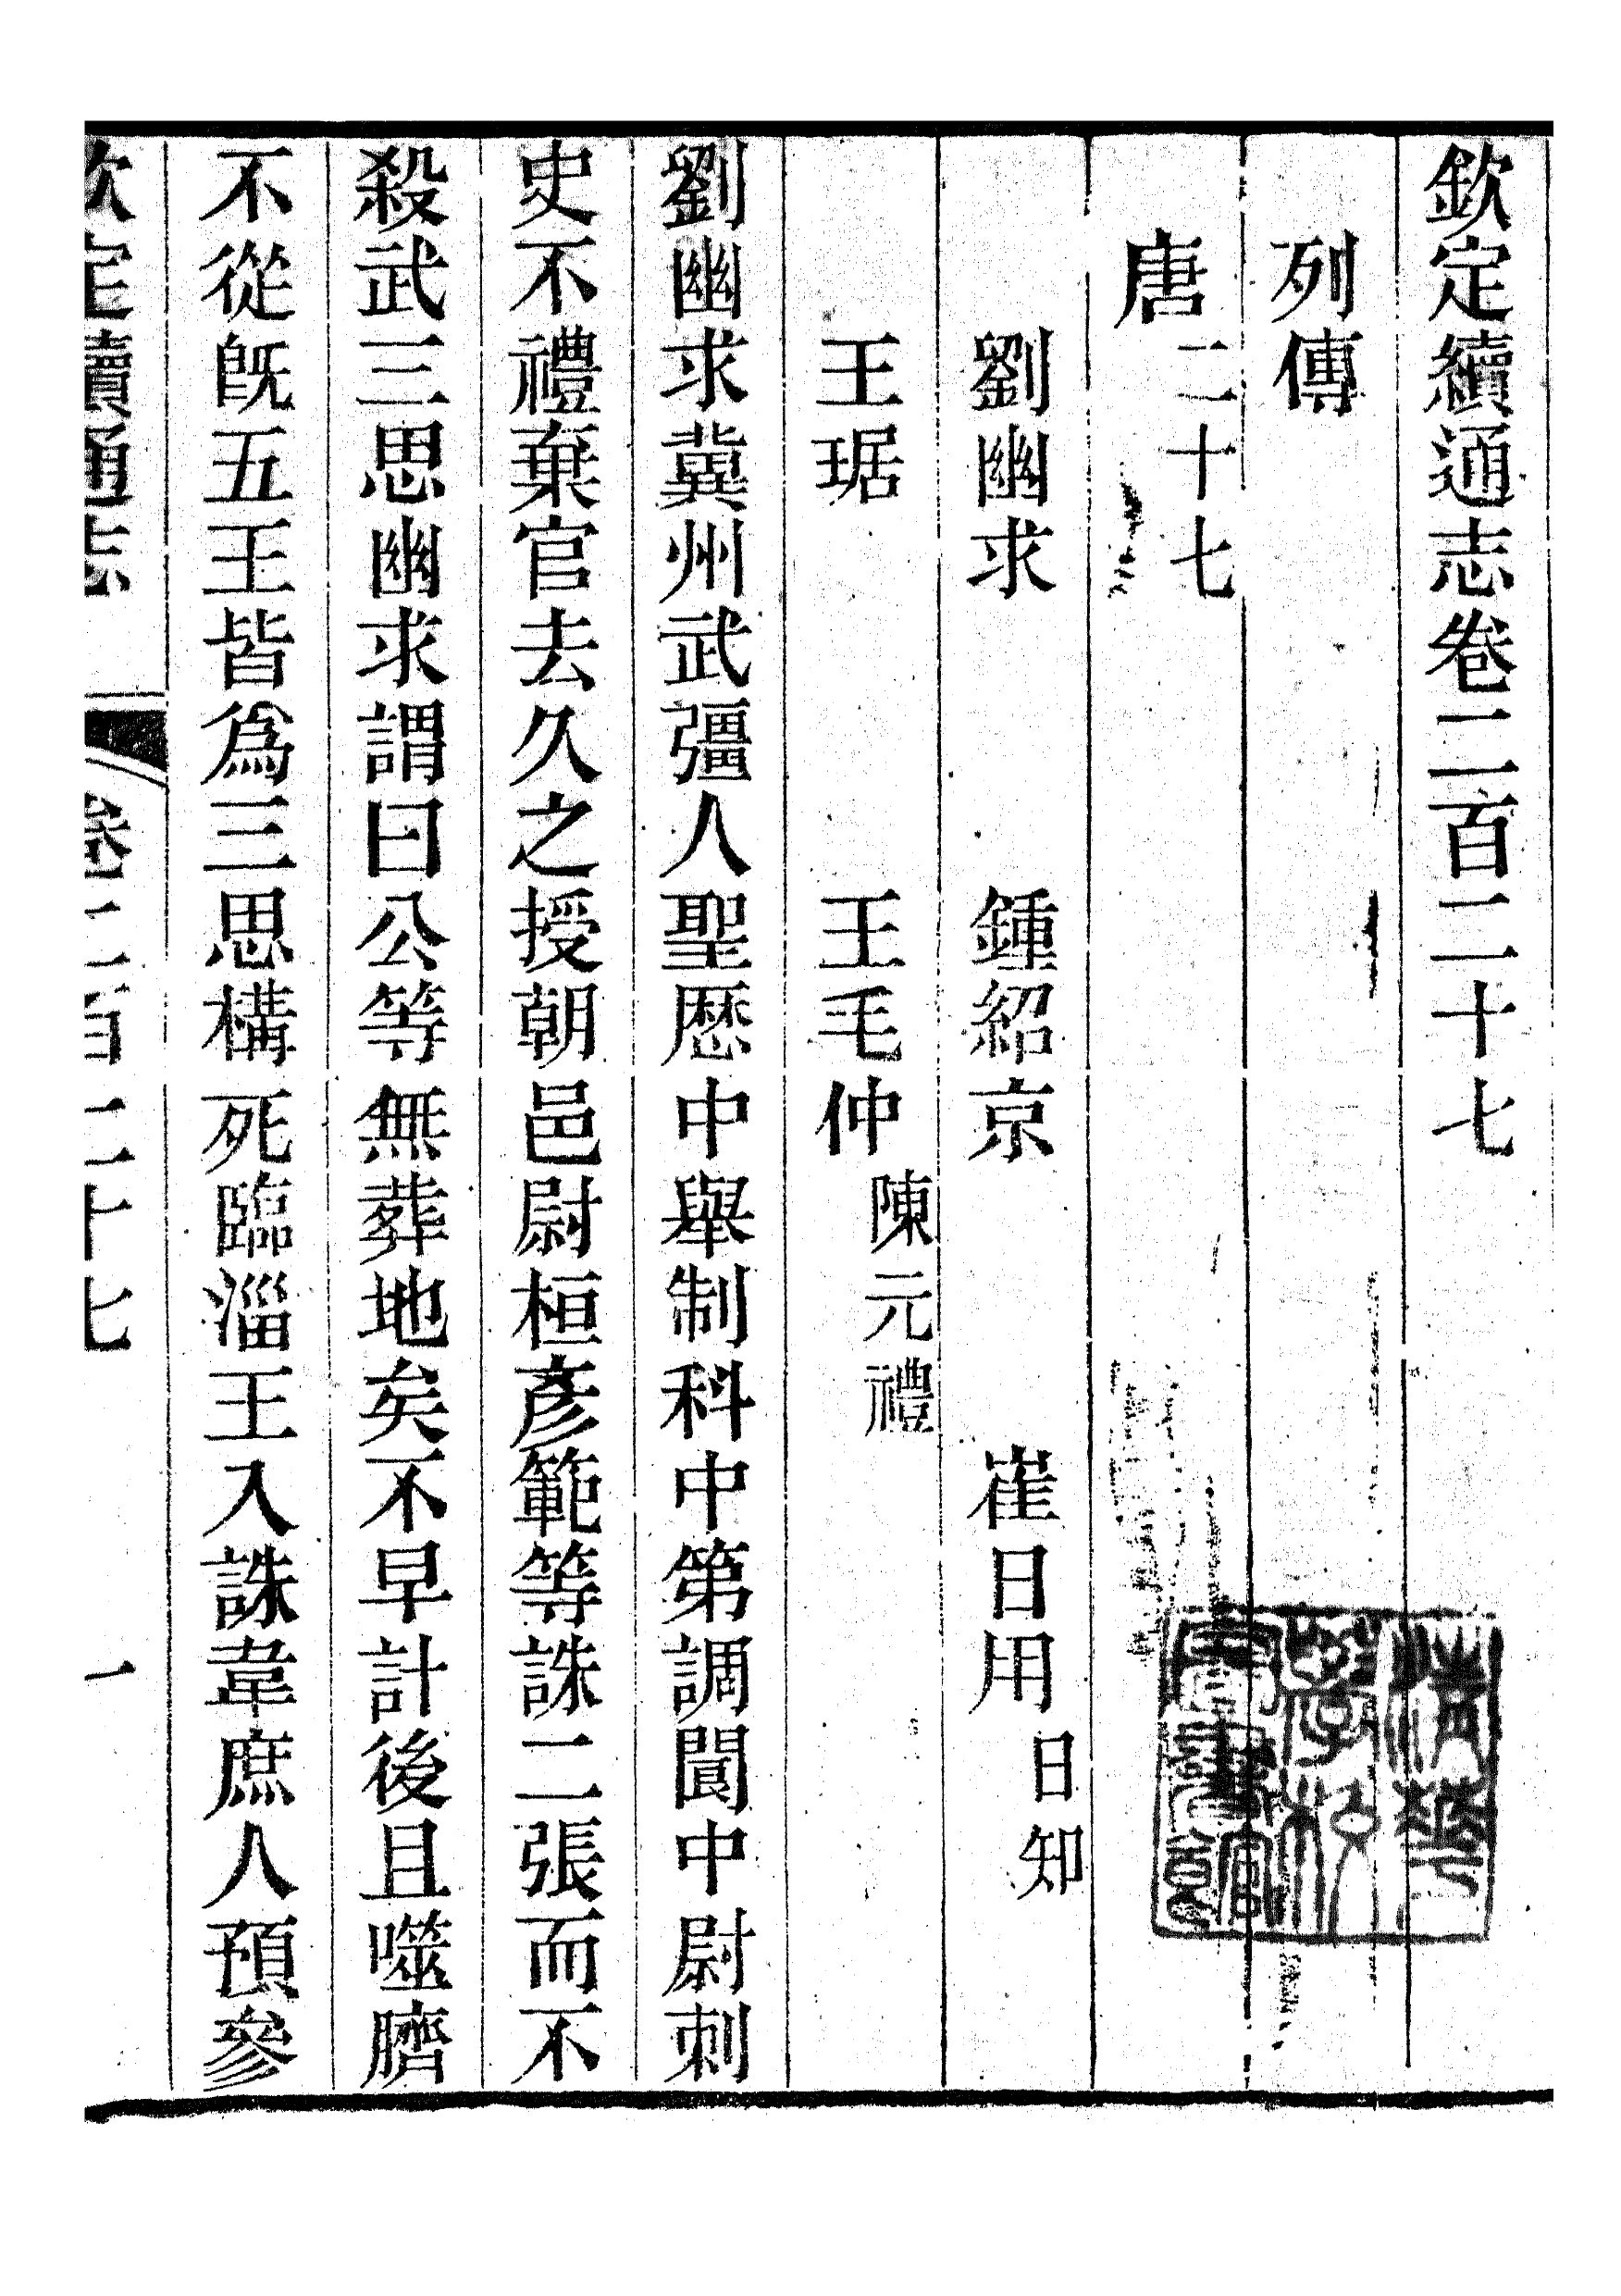 欽定續通志卷二百二十七
列傳
唐二十七
劉幽求　鍾紹京　崔日用日知
王琚　王毛仲陳元禮
劉幽求冀州武彊人聖歷中舉制科中第調閬中尉刺
史不禮棄官去久之授朝邑尉桓彥範等誅二張而不
殺武三思幽求謂曰公等無葬地矣不早計後且噬臍
不從旣五王皆爲三思構死臨淄王入誅韋庶人預參
欽定續通志　卷二百二十七　一